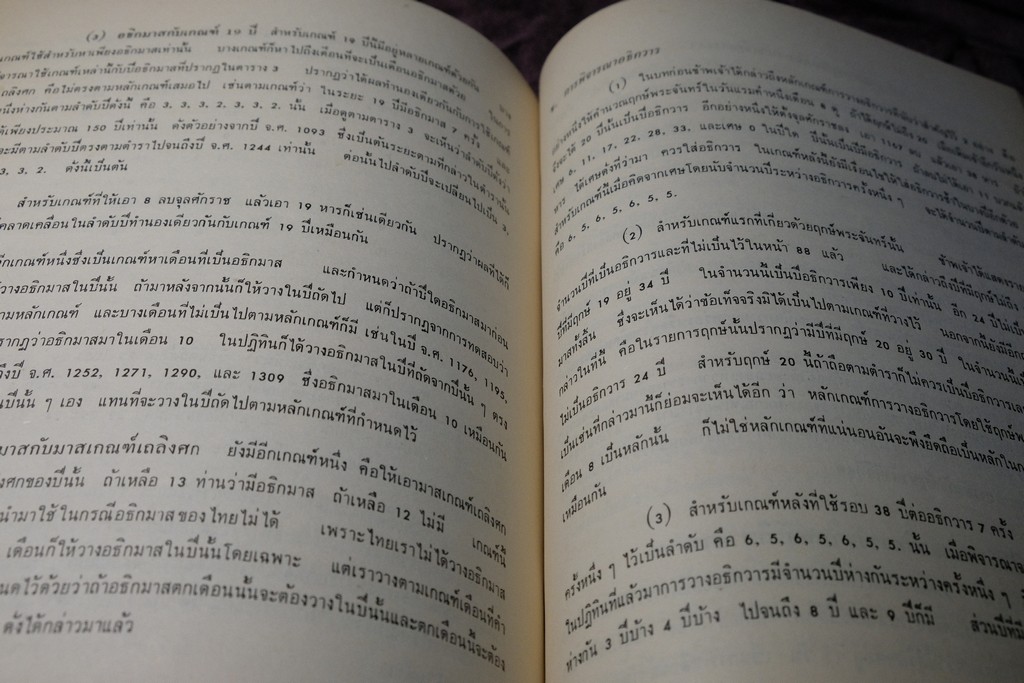 (3) อธิกมาสกับเกณฑ์ 19 ปี สำหรับเกณฑ์ 19 ปีนี้มีอยู่หลายเกณฑ์ด้วยกัน
เกณฑ์ใช้สำหรับหาเพียงอธิกมาสเท่านั้น บางเกณฑ์ก็หาไปถึงเดือนที่จะเป็นเดือนอธิกมาสด้วย
จารณาใช้เกณฑ์เหล่านี้กับปีอธิกมาสที่ปรากฏในตาราง 3 ปรากฏว่าได้ผลทำนองเดียวกันกับการใช้เกณฑ์
ถลิงศก คือไม่ตรงตามหลักเกณฑ์เสมอไป เช่นตามเกณฑ์ว่า ในระยะ 19 ปีมีอธิกมาส 7 ครั้ง
หนึ่งห่างกันตามลำดับปีดังนี้ คือ 3, 3, 3, 2, 3, 3, 2. นั้น เมื่อดูตามตาราง 3 จะเห็นว่าลำดับปีดังว่า
ด้เพียงประมาณ 150 ปีเท่านั้น ดังตัวอย่างจากปี จ.ศ. 1093 ซึ่งเป็นต้นระยะตามที่กล่าวในตำรานั้น
จะมีตามลำดับปีตรงตามตำราไปจนถึงปี จ.ศ. 1244 เท่านั้น ต่อนั้นไปลำดับปีจะเปลี่ยนไปเป็น 3,
3, 3, 2. ดังนี้เป็นต้น
สำหรับเกณฑ์ที่ให้เอา 8 ลบจุลศักราช แล้วเอา 19 หารก็เช่นเดียวกัน ปรากฏว่าผลที่ได้ก็
คลาดเคลื่อนในลำดับปีทำนองเดียวกันกับเกณฑ์ 19 ปีเหมือนกัน
อีกเกณฑ์หนึ่งซึ่งเป็นเกณฑ์หาเดือนที่เป็นอธิกมาส และกำหนดว่าถ้าปีใดอธิกมาสมาก่อน
วางอธิกมาสในปีนั้น ถ้ามาหลังจากนั้นก็ให้วางในปีถัดไป แต่ก็ปรากฏจากการทดสอบว่า
ามหลักเกณฑ์ และบางเดือนที่ไม่เป็นไปตามหลักเกณฑ์ก็มี เช่นในปี จ.ศ. 1176, 1195,
รากฏว่าอธิกมาสมาในเดือน 10 ในปฏิทินก็ได้วางอธิกมาสในปีที่ถัดจากปีนั้น ๆ ตรง
ถึงปี จ.ศ. 1252, 1271, 1290, และ 1309 ซึ่งอธิกมาสมาในเดือน 10 เหมือนกัน
นปีนั้น ๆ เอง แทนที่จะวางในปีถัดไปตามหลักเกณฑ์ที่กำหนดไว้
มาสกับมาสเกณฑ์เถลิงศก ยังมีอีกเกณฑ์หนึ่ง คือให้เอามาสเกณฑ์เถลิงศก
งศกของปีนั้น ถ้าเหลือ 13 ท่านว่ามีอธิกมาส ถ้าเหลือ 12 ไม่มี เกณฑ์นี้
นำมาใช้ในกรณีอธิกมาสของไทยไม่ได้ เพราะไทยเราไม่ได้วางอธิกมาส
เดือนก็ให้วางอธิกมาสในปีนั้นโดยเฉพาะ แต่เราวางตามเกณฑ์เดือนที่คำ
นดไว้ด้วยว่าถ้าอธิกมาสตกเดือนนั้นจะต้องวางในปีนั้นและตกเดือนนี้จะต้อง
ดังได้กล่าวมาแล้ว
การพิจารณาอธิกวาร
(1) ในบทก่อนข้าพเจ้าได้กล่าวถึงหลักเกณฑ์การวางอธิกวาร
อย่างหนึ่งให้คำนวณฤกษ์พระจันทร์ในวันแรมค่ำหนึ่งเดือน 8
20 ปีนั้นเป็นปีอธิกวาร อีกอย่างหนึ่งให้ตั้งจุลศักราชลง เอา 1167 ลบ แล้วเอา 38 หาร
เศษ 6, 11, 17, 22, 28, 33, และเศษ 0 ในปีใด ปีนั้นเป็นปีอธิกวาร
หาร ได้เศษดังที่ว่ามา ควรใส่อธิกวาร ในเกณฑ์หลังนี้
สำหรับเกณฑ์นี้เมื่อคิดจากเศษโดยนับจำนวนปีระหว่างอธิกวารครั้งหนึ่ง ๆ
คือ 6, 5, 6, 5, 6, 5, 5.
(2) สำหรับเกณฑ์แรกที่เกี่ยวด้วยฤกษ์พระจันทร์นั้น ข้าพเจ้าได้แสดงราย
จำนวนปีที่เป็นอธิกวารและที่ไม่เป็นไว้ในหน้า 88 แล้ว และได้กล่าวถึงปีที่มีฤกษ์ไม่ถึง
ปีที่มีฤกษ์ 19 อยู่ 34 ปี ในจำนวนนี้เป็นปีอธิกวารเพียง 10 ปีเท่านั้น อีก 24 ปีไม่เป็น
มาสทั้งสิ้น ซึ่งจะเห็นได้ว่าข้อเท็จจริงมิได้เป็นไปตามเกณฑ์ที่วางไว้ นอกจากนี้ยังมีอีก
กล่าวในที่นี้ คือในรายการฤกษ์นั้นปรากฏว่ามีปีที่มีฤกษ์ 20 อยู่ 30 ปี ในจำนวนนี้เป็
ไม่เป็นอธิกวาร 24 ปี สำหรับฤกษ์ 20 นี้ถ้าถือตามตำราก็ไม่ควรเป็นปีอธิกวารเลย
เป็นเช่นที่กล่าวมานี้ก็ย่อมจะเห็นได้อีก ว่า หลักเกณฑ์การวางอธิกวารโดยใช้ฤกษ์พ
เดือน 8 เป็นหลักนั้น ก็ไม่ใช่หลักเกณฑ์ที่แน่นอนอันจะพึงยึดถือเป็นหลักในก
เหมือนกัน
(3) สำหรับเกณฑ์หลังที่ใช้รอบ 38 ปีต่ออธิกวาร 7 ครั้ง
ครั้งหนึ่ง ๆ ไว้เป็นลำดับ คือ 6, 5, 6, 5, 6, 5, 5. นั้น เมื่อพิจารณาจ
ในปฏิทินที่แล้วมาการวางอธิกวารมีจำนวนปีห่างกันระหว่างครั้งหนึ่ง ๆ
ห่างกัน 3 ปีบ้าง 4 ปีบ้าง ไปจนถึง 8 ปี และ 9 ปีก็มี ส่วนปีที่มี